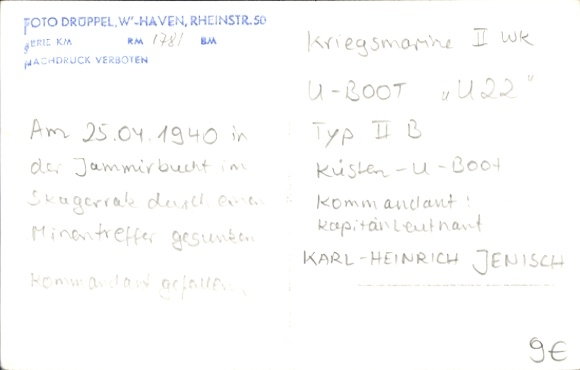 FOTO DRÜPPEL, W'-HAVEN, RHEINSTR. 50
SERIE KM RM 1781 BM
NACHDRUCK VERBOTEN
Am 25.04.1940 in
der Jammerbucht im
Skagerrak durch einen
Minentreffer gesunken
Kommandant gefallen.
Kriegsmarine II WK
U-BOOT „U22"
Typ II B
Küsten-U-Boot
Kommandant:
Kapitänleutnant
KARL-HEINRICH JENISCH
9€